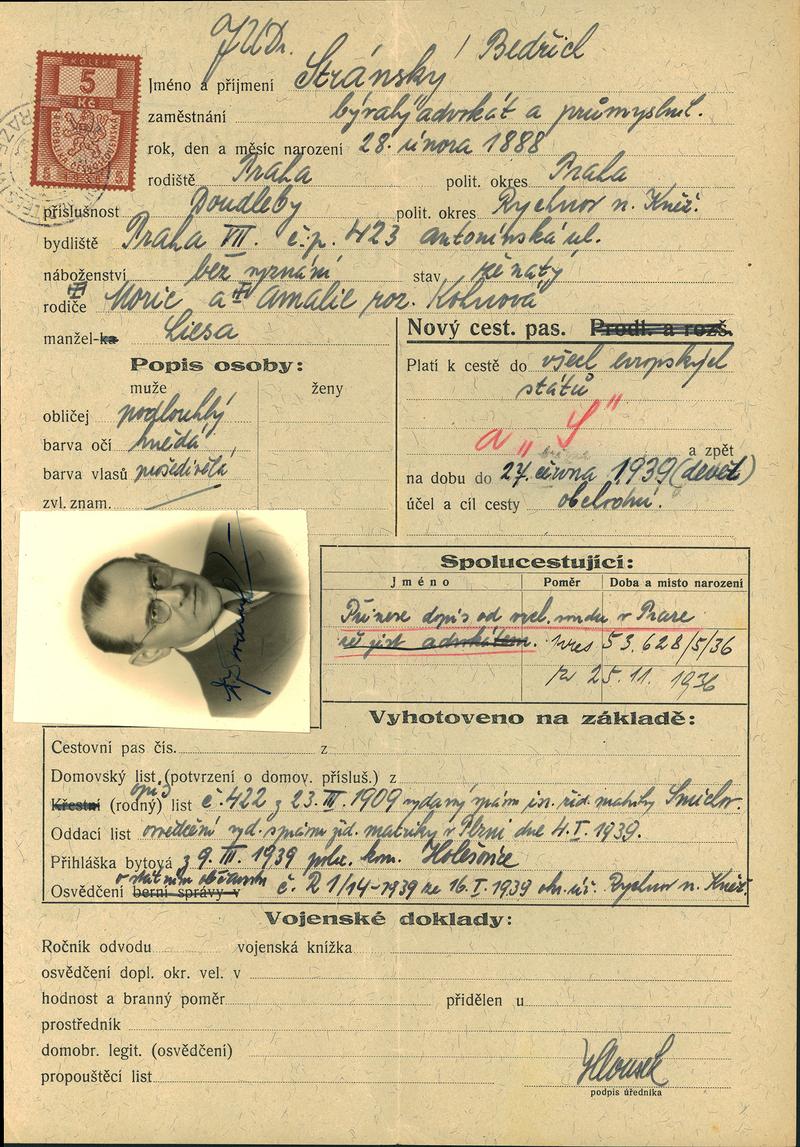 JUDr.
Jméno a příjmení Stránský / Bedřich
KOLEK
5
Kč
zaměstnání bývalý advokát a průmyslník.
rok, den a měsíc narození 28. února 1888
rodiště Praha polit. okres Praha
příslušnost Doudleby polit. okres Rychnov n. Kněž.
bydliště Praha VII. č.p. 423 Antonínská ul.
náboženství bez vyznání stav ženatý
rodiče Moric a Amalie roz. Kohnová
manžel-ka Liesa
Nový cest. pas. Prodl. a rozš.
Popis osoby:
muže ženy
obličej podlouhlý
barva očí hnědá
barva vlasů prošedivělá
zvl. znam.
Platí k cestě do všech evropských
států
a „S"
a zpět
na dobu do 27. 1939 (devět)
účel a cíl cesty obchodní.
Spolucestující:
Jméno Poměr Doba a místo narození
Přinese dopis od v Praze
že jest advokátem. pres 53.628/5/36
25.11. 1936
Vyhotoveno na základě:
Cestovní pas čís. z
Domovský list (potvrzení o domov. přísluš.) z
opis
Křestní (rodný) list č. 422 z 23. III. 1909 vydaný správ. isr. žid. matriky Smíchov.
Oddací list osvědčení vyd. správou žid. matriky v Plzni dne 4. I. 1939.
Přihláška bytová z 9. III. 1939 kom. Holešovice
o státním občanství
Osvědčení berní správy v č. R 1/14-1939 ze 16. I. 1939 ok. úř. Rychnov n. Kněž.
Vojenské doklady:
Ročník odvodu vojenská knížka
osvědčení dopl. okr. vel. v
hodnost a branný poměr přidělen u
prostředník
domobr. legit. (osvědčení)
propouštěcí list
podpis úředníka